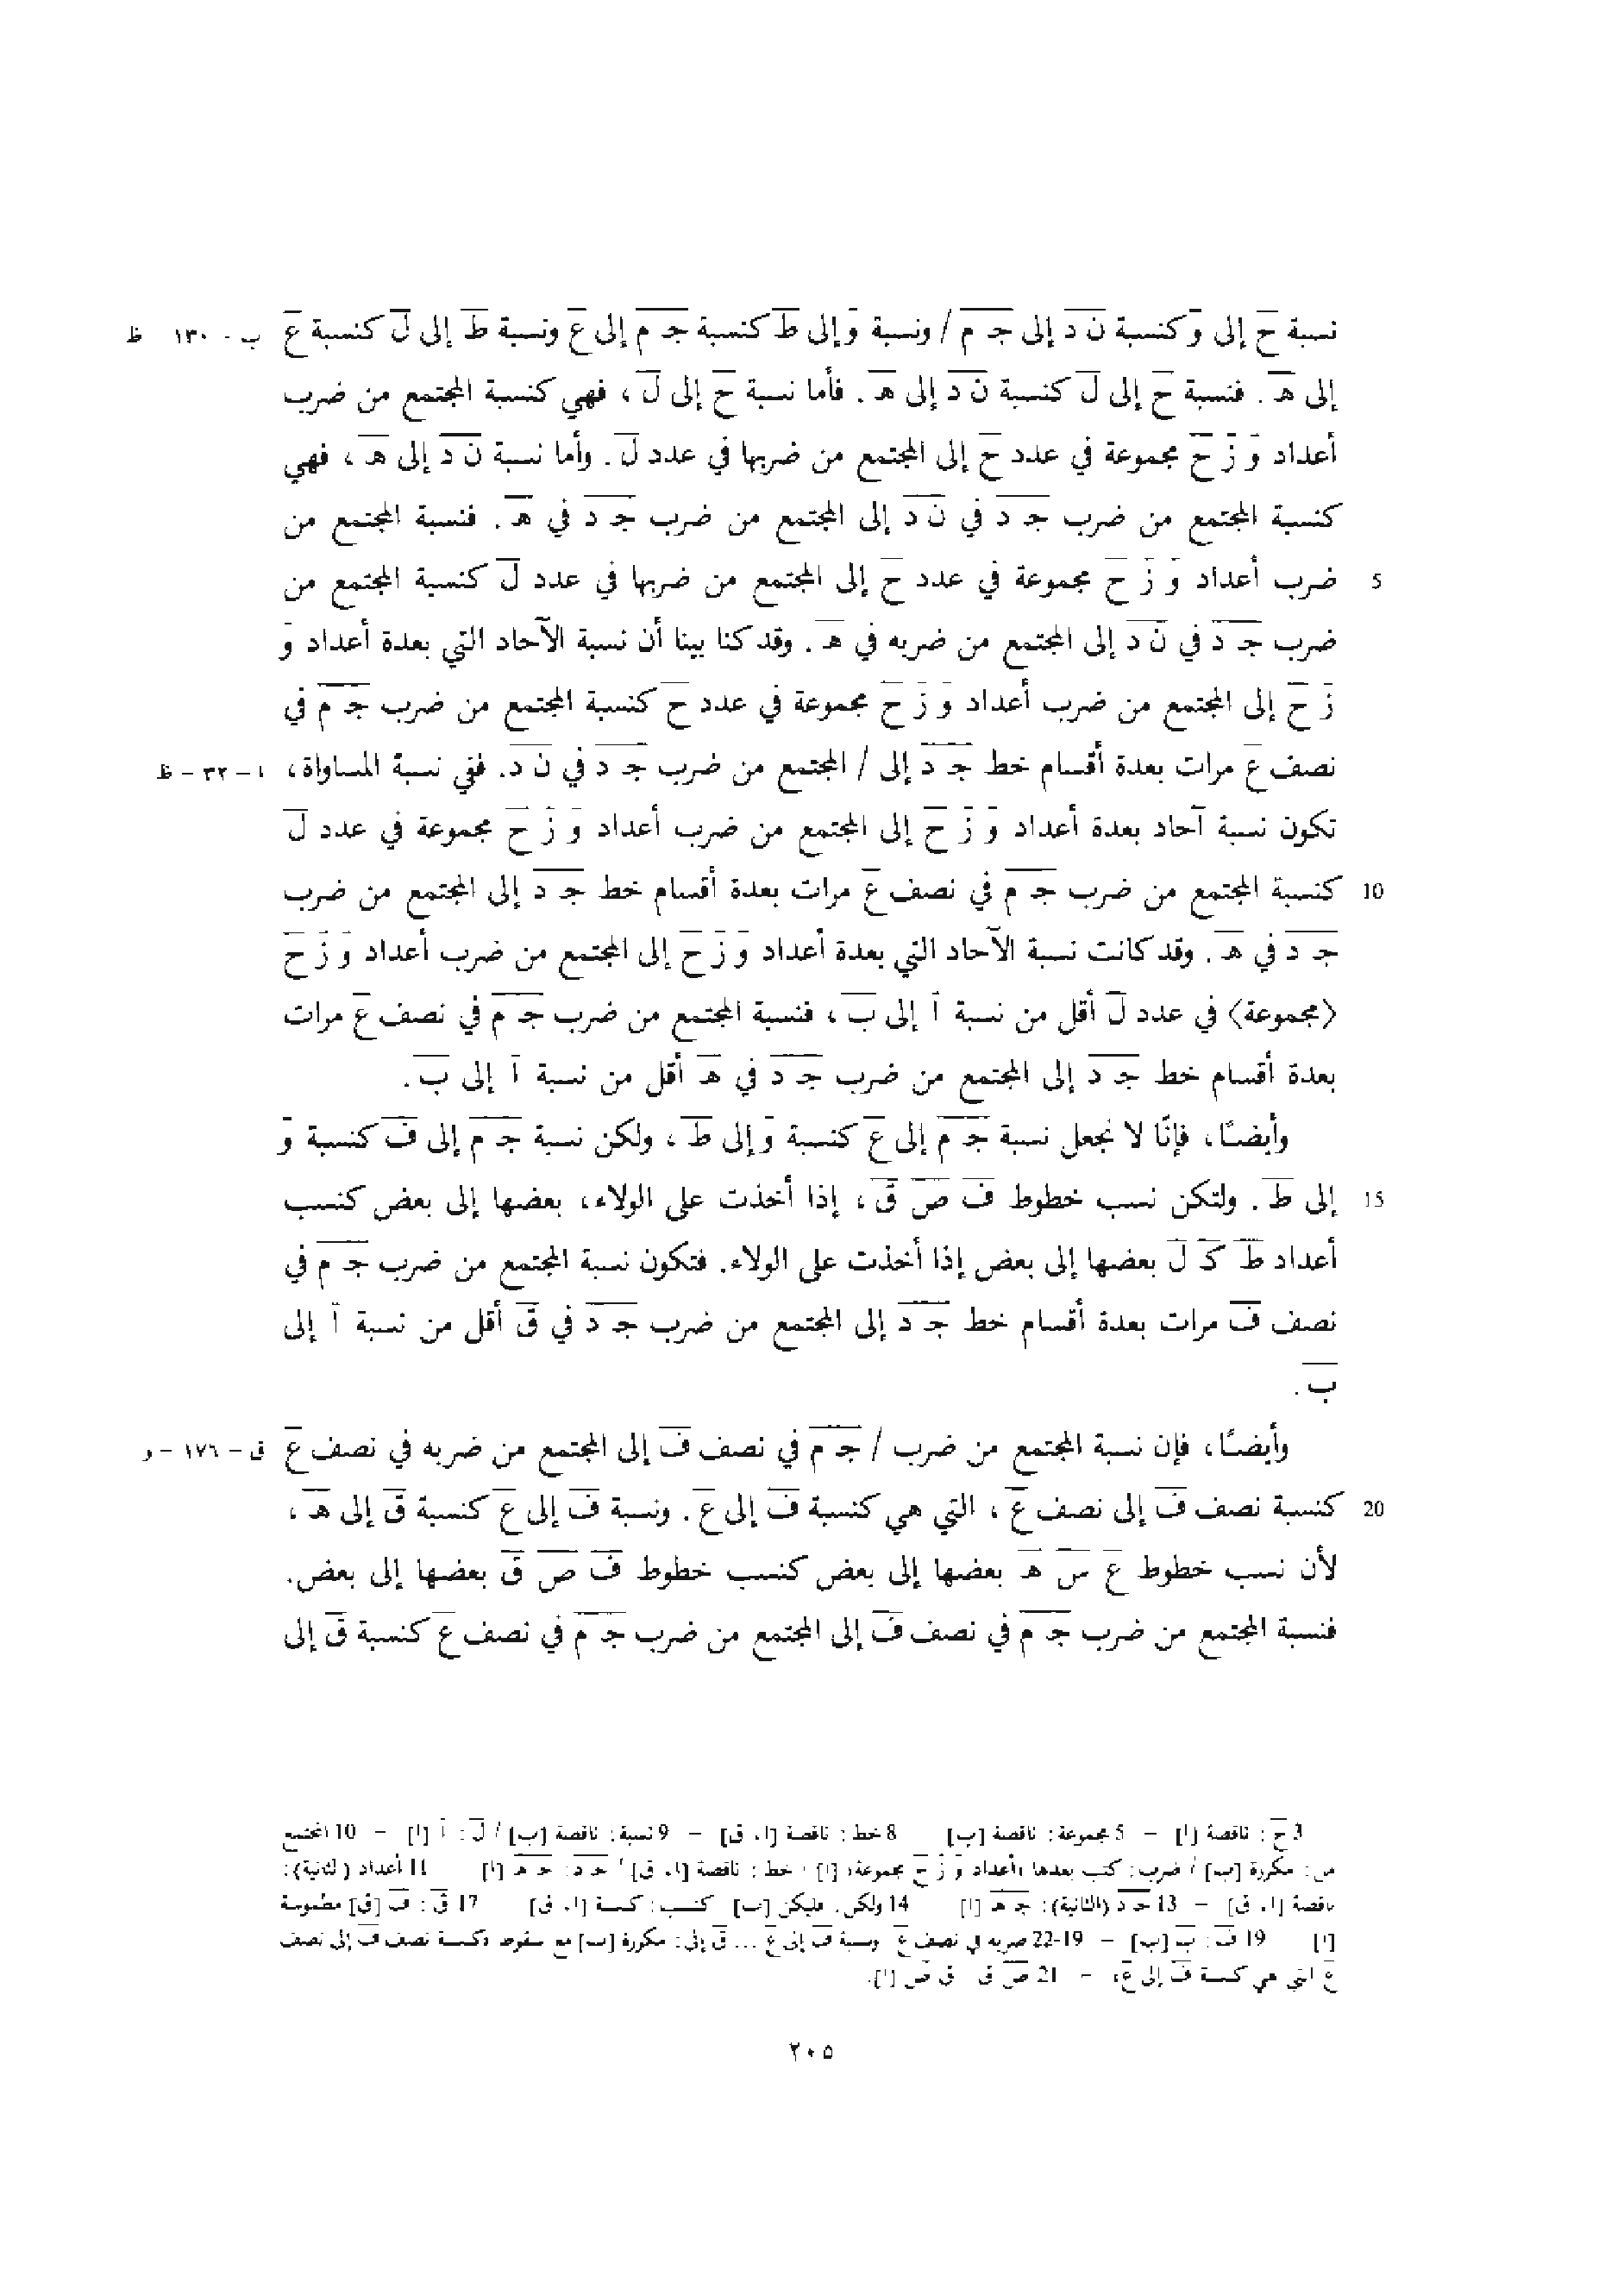 نسبة ح إلى و كنسبة ن د إلى ج م / ونسبة و إلى ط كنسبة ج م إلى ع ونسبة ط إلى ل كنسبة ع ب - ١٣٠ ظ
إلى ه . فنسبة ح إلى ل كنسبة ن د إلى ه . فأما نسبة ح إلى ل ، فهي كنسبة المجتمع من ضرب
أعداد و ز ح مجموعة في عدد ح إلى المجتمع من ضربها في عدد ل . وأما نسبة ن د إلى ه ، فهي
كنسبة المجتمع من ضرب ج د في ن د إلى المجتمع من ضرب ج د في ه . فنسبة المجتمع من
5 ضرب أعداد و ز ح مجموعة في عدد ح إلى المجتمع من ضربها في عدد ل كنسبة المجتمع من
ضرب ج د في ن د إلى المجتمع من ضربه في ه . وقد كنا بينا أن نسبة الآحاد التي بعدة أعداد و
ز ح إلى المجتمع من ضرب أعداد و ز ح مجموعة في عدد ح كنسبة المجتمع من ضرب ج م في
نصف ع مرات بعدة أقسام خط ج د إلى / المجتمع من ضرب ج د في ن د. ففي نسبة المساواة، ا - ٣٢ - ظ
تكون نسبة آحاد بعدة أعداد و ز ح إلى المجتمع من ضرب أعداد و ز ح مجموعة في عدد ل
10 كنسبة المجتمع من ضرب ج م في نصف ع مرات بعدة أقسام خط ج د إلى المجتمع من ضرب
ج د في ه . وقد كانت نسبة الآحاد التي بعدة أعداد و ز ح إلى المجتمع من ضرب أعداد و ز ح
〈مجموعة〉 في عدد ل أقل من نسبة ا إلى ب ، فنسبة المجتمع من ضرب ج م في نصف ع مرات
بعدة أقسام خط ج د إلى المجتمع من ضرب ج د في ه أقل من نسبة ا إلى ب .
وأيضًا، فإنّا لا نجعل نسبة ج م إلى ع كنسبة و إلى ط ، ولكن نسبة ج م إلى ف كنسبة و
15 إلى ط . ولتكن نسب خطوط ف ص ق ، إذا أخذت على الولاء، بعضها إلى بعض كنسب
أعداد ط ك ل بعضها إلى بعض إذا أخذت على الولاء. فتكون نسبة المجتمع من ضرب ج م في
نصف ف مرات بعدة أقسام خط ج د إلى المجتمع من ضرب ج د في ق أقل من نسبة ا إلى
ب .
وأيضًا، فإن نسبة المجتمع من ضرب / ج م في نصف ف إلى المجتمع من ضربه في نصف ع ق - ١٧٦ - و
20 كنسبة نصف ف إلى نصف ع ، التي هي كنسبة ف إلى ع . ونسبة ف إلى ع كنسبة ق إلى ه ،
لأن نسب خطوط ع س ه بعضها إلى بعض كنسب خطوط ف ص ق بعضها إلى بعض.
فنسبة المجتمع من ضرب ج م في نصف ف إلى المجتمع من ضرب ج م في نصف ع كنسبة ق إلى
3 ح : ناقصة [ا] – 5 مجموعة: ناقصة [ب] 8 خط: ناقصة [ا، ق] – 9 نسبة: ناقصة [ب] / ل : ا [ا] – 10 المجتمع
من: مكررة [ب] / ضرب: كتب بعدها «أعداد و ز ح مجموعة» [ا] / خط: ناقصة [ا، ق] / ج د: ج ه [ا] 11 أعداد (الثانية):
ناقصة [ا، ق] – 13 ج د (الثانية): ج ه [ا] 14 ولكن: فليكن [ب] كنسب: كنسبة [ا، ق] 17 ق : ف [ق] مطموسة
[ا] 19 ف : ب [ب] – 19-22 ضربه في نصف ع ونسبة ف إلى ع ... ق إلى: مكررة [ب] مع سقوط «كنسبة نصف ف إلى نصف
ع التي هي كنسبة ف إلى ع» – 21 ص ق ق ص [ا].
٢٠٥